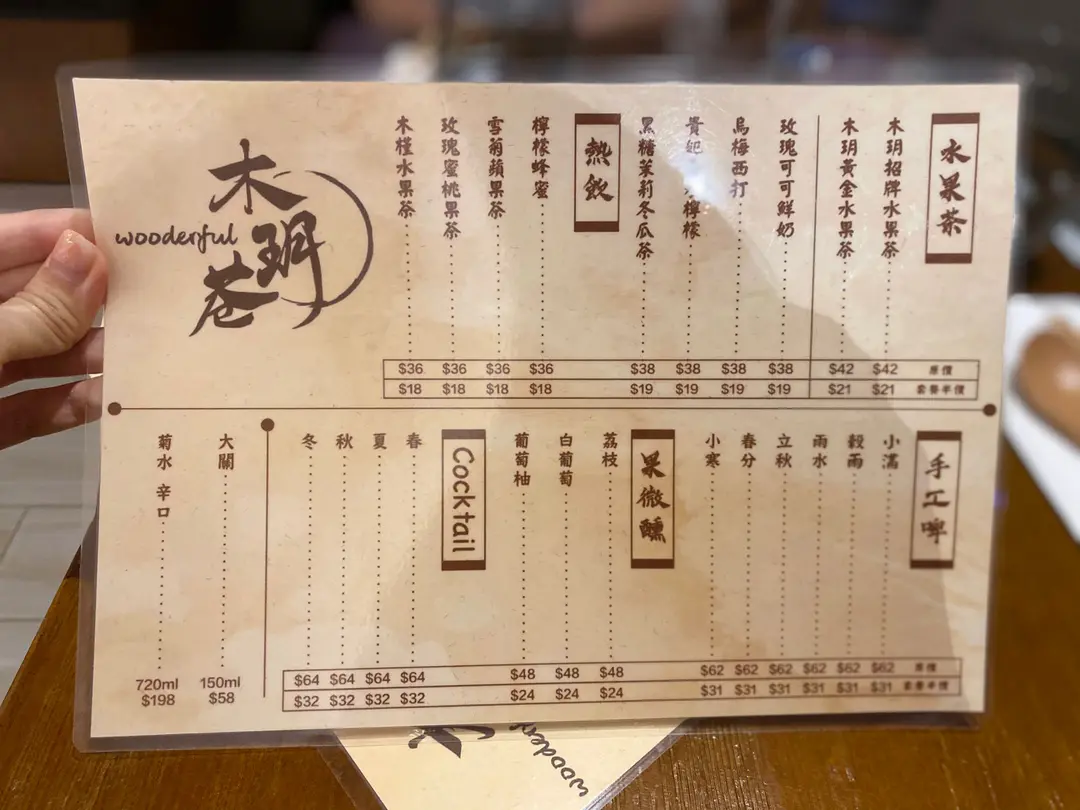 水果茶
木玥招牌水果茶 $42 $21
木玥黃金水果茶 $42 $21
原價
套餐半價
玫瑰可可鮮奶 $38 $19
烏梅西打 $38 $19
貴妃 檸檬 $38 $19
黑糖茉莉冬瓜茶 $38 $19
熱飲
檸檬蜂蜜 $36 $18
雪菊蘋果茶 $36 $18
玫瑰蜜桃果茶 $36 $18
木槿水果茶 $36 $18
木玥巷
wooderful
手工啤
小滿 $62 $31
穀雨 $62 $31
雨水 $62 $31
立秋 $62 $31
春分 $62 $31
小寒 $62 $31
原價
套餐半價
果微醺
荔枝 $48 $24
白葡萄 $48 $24
葡萄柚 $48 $24
Cocktail
春 $64 $32
夏 $64 $32
秋 $64 $32
冬 $64 $32
大關 150ml $58
菊水 辛口 720ml $198
wooderf